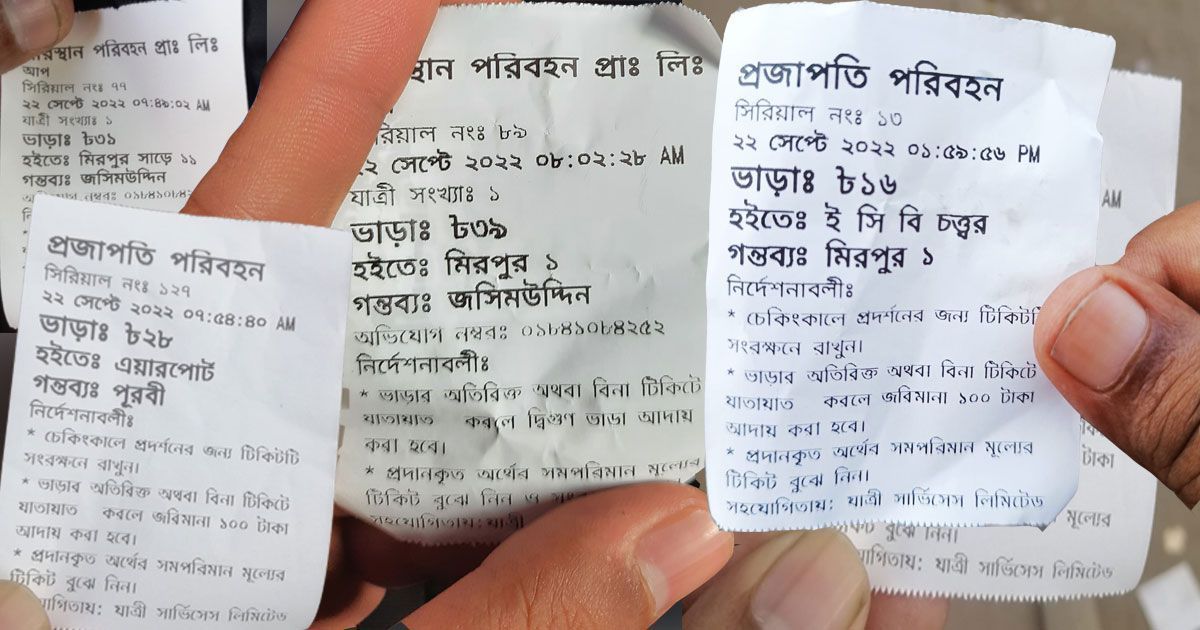 পরিবহন প্রাঃ লিঃ
আপ
সিরিয়াল নংঃ ৭৭
২২ সেপ্টে ২০২২ ০৭:৪৯:০২ AM
যাত্রী সংখ্যাঃ ১
ভাড়াঃ ৳৩১
হইতেঃ মিরপুর সাড়ে ১১
গন্তব্যঃ জসিমউদ্দিন
প্রজাপতি পরিবহন
সিরিয়াল নংঃ ১২৭
২২ সেপ্টে ২০২২ ০৭:৫৪:৪০ AM
ভাড়াঃ ৳২৮
হইতেঃ এয়ারপোর্ট
গন্তব্যঃ পূরবী
নির্দেশনাবলীঃ
* চেকিংকালে প্রদর্শনের জন্য টিকিটটি
সংরক্ষনে রাখুন।
* ভাড়ার অতিরিক্ত অথবা বিনা টিকিটে
যাতায়াত করলে জরিমানা ১০০ টাকা
আদায় করা হবে।
* প্রদানকৃত অর্থের সমপরিমান মূল্যের
টিকিট বুঝে নিন।
যাত্রী সার্ভিসেস লিমিটেড
পরিবহন প্রাঃ লিঃ
নংঃ ৮৯
সেপ্টে ২০২২ ০৮:০২:২৮ AM
যাত্রী সংখ্যাঃ ১
ভাড়াঃ ৳৩৯
হইতেঃ মিরপুর ১
গন্তব্যঃ জসিমউদ্দিন
অভিযোগ নম্বরঃ ০১৮৪১০৮৪২৫২
নির্দেশনাবলীঃ
* ভাড়ার অতিরিক্ত অথবা বিনা টিকিটে
যাতায়াত করলে দ্বিগুণ ভাডা আদায়
করা হবে।
* প্রদানকৃত অর্থের সমপরিমান মূল্যের
টিকিট বুঝে নিন ও
সহযোগিতায়: যাত্রী
প্রজাপতি পরিবহন
সিরিয়াল নংঃ ১৩
২২ সেপ্টে ২০২২ ০১:৫৯:৫৬ PM
ভাড়াঃ ৳১৬
হইতেঃ ই সি বি চত্ত্বর
গন্তব্যঃ মিরপুর ১
নির্দেশনাবলীঃ
* চেকিংকালে প্রদর্শনের জন্য
সংরক্ষনে রাখুন।
* ভাড়ার অতিরিক্ত অথবা বিনা টিকিটে
যাতায়াত করলে জরিমানা ১০০ টাকা
আদায় করা হবে।
* প্রদানকৃত অর্থের সমপরিমান মূল্যের
টিকিট বুঝে নিন।
সহযোগিতায়: যাত্রী সার্ভিসেস লিমিটেড
AM
টাকা
মূল্যের
বুঝে নিন।
যাত্রী সার্ভিসেস লিমিটেড